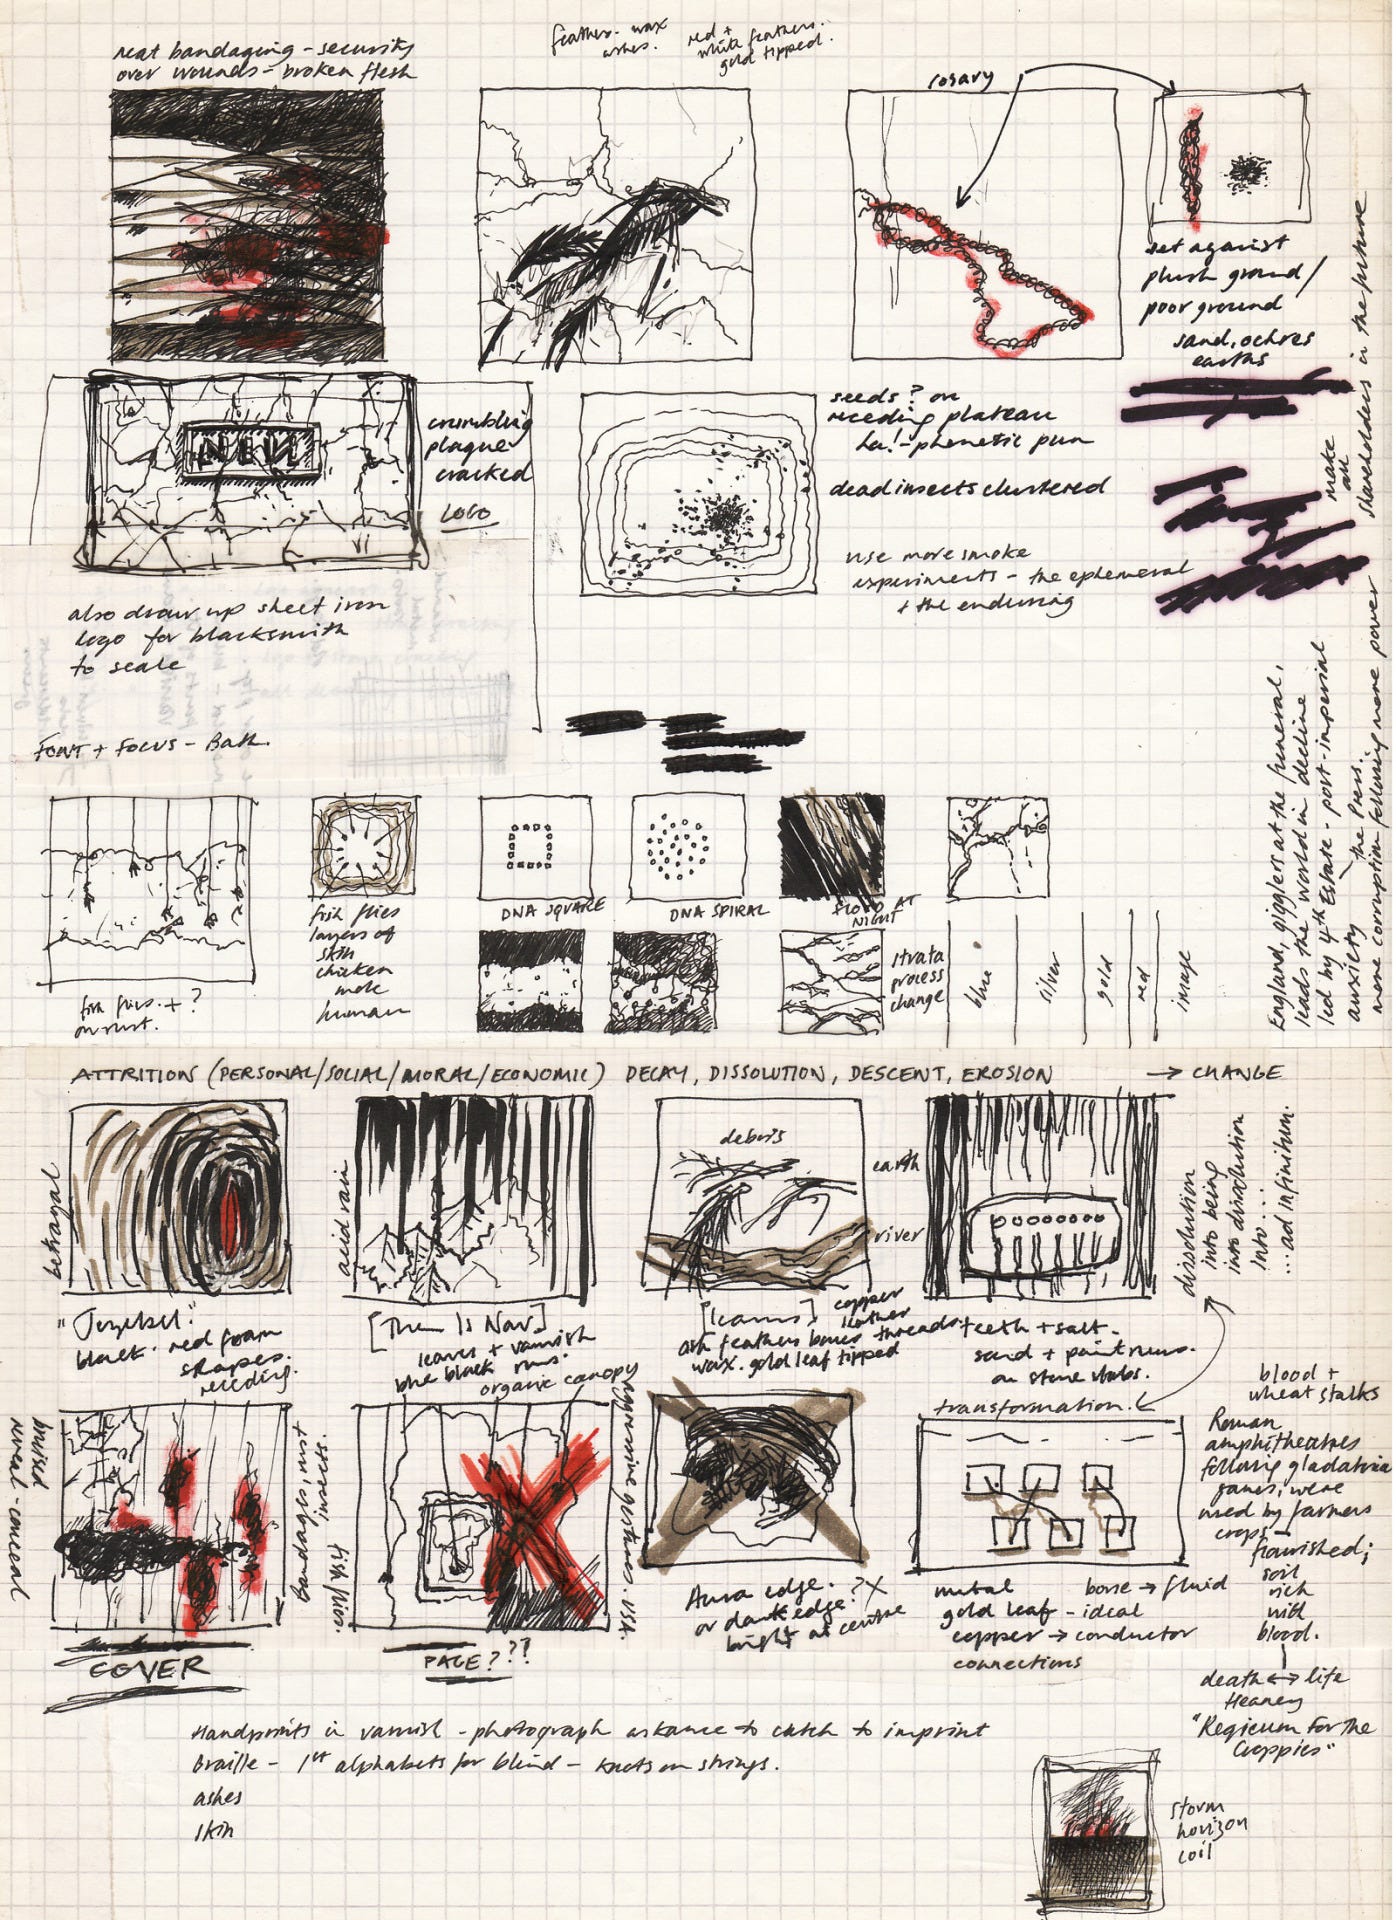 neat bandaging - security
over wounds - broken flesh
feathers. wax
ashes.
red +
white feathers.
gold tipped.
rosary
set against
plush ground /
poor ground
sand, ochres
earths
NIN
crumbling
plaque
cracked
LOGO
seeds? on
receding plateau
ha! - phonetic pun
dead insects clustered
use more smoke
experiments - the ephemeral
+ the enduring
also draw up sheet iron
logo for blacksmith
to scale
FONT + FOCUS - Bath.
make
all
shareholders in the future
England, gigglers at the funeral,
leads the world in decline
led by 4th Estate - post-imperial
anxiety
the Press..
more corruption following more power
fish flies
layers of
skin
chicken
mole
human
DNA SQUARE
DNA SPIRAL
FLOOD AT
NIGHT
fish flies. + ?
on rust.
strata
process
change
blue
silver
gold
red
image
ATTRITION (PERSONAL/SOCIAL/MORAL/ECONOMIC) DECAY, DISSOLUTION, DESCENT, EROSION → CHANGE
betrayal
acid rain
debris
earth
river
dissolution
into being
into dissolution
into ....
...ad infinitum.
"Jezebel."
black. red foam
shapes.
receding.
[The Is Now]
leaves + varnish
blue black runs.
organic canopy
[Icarus]
copper
leather
ash feathers bones threads
wax. gold leaf tipped
teeth + salt.
sand + paint runs.
on stone slabs.
transformation.
blood +
wheat stalks
bruised
reveal - conceal
Bandages rust
insects.
fish flies.
Roman
amphitheatres
following gladatorial
games, were
used by farmers
crops
flourished;
soil
rich
with
blood.
COVER
PAGE???
Aura edge.
or dark edge? X
bright at centre
metal
gold leaf - ideal
copper → conductor
connections
bone → fluid
death ↔ life
Heaney
"Requiem For the
Croppies"
Handprints in varnish - photograph askance to catch to imprint
Braille - 1st alphabets for blind - knots on strings.
ashes
skin
storm
horizon
coil